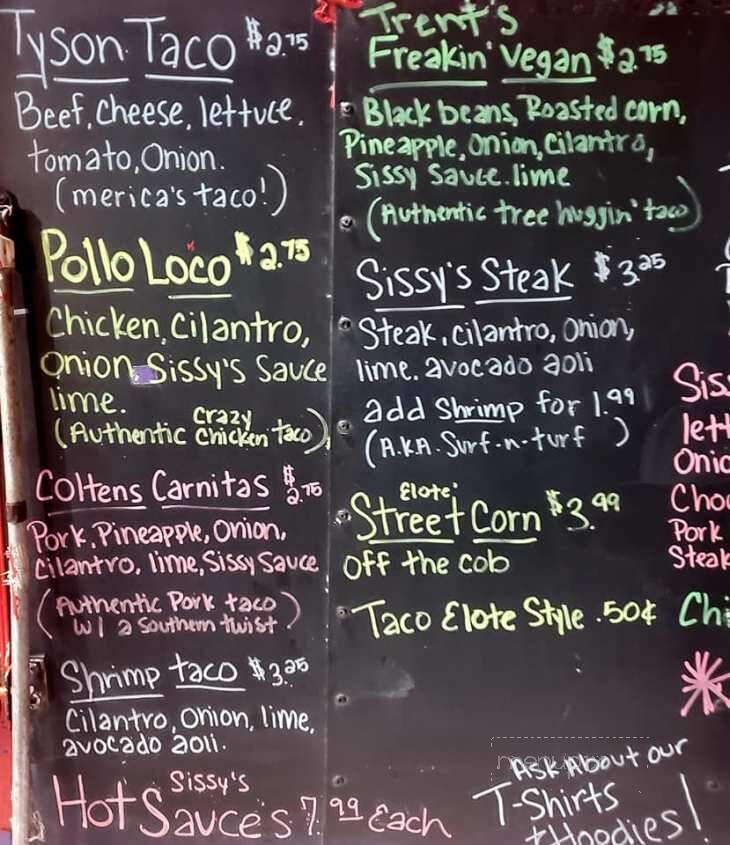 Tyson Taco $2.75
Beef, cheese, lettuce,
tomato, Onion.
(merica's taco!)
Pollo Loco $2.75
Chicken, Cilantro,
Onion Sissy's Sauce
lime.
(Authentic Crazy Chicken taco)
Coltens Carnitas $2.75
Pork, Pineapple, Onion,
Cilantro, lime, Sissy Sauce
(Authentic Pork taco
w/ a Southern twist)
Shrimp taco $3.25
Cilantro, Onion, lime,
avocado aoli.
Sissy's
Hot Sauce's 7.99 Each
Trent's
Freakin' Vegan $2.75
Black beans, Roasted corn,
Pineapple, Onion, Cilantro,
Sissy Sauce. lime
(Authentic tree huggin' taco)
Sissy's Steak $3.25
Steak, cilantro, Onion,
lime. avocado aoli
add Shrimp for 1.99
(A.K.A. Surf-n-turf)
Elote'
Street Corn $3.99
Off the cob
Taco Elote Style .50¢
Ask About our
T-Shirts
+ Hoodies!
Sis
lett
Onio
Cho
Pork
Steak
Chi